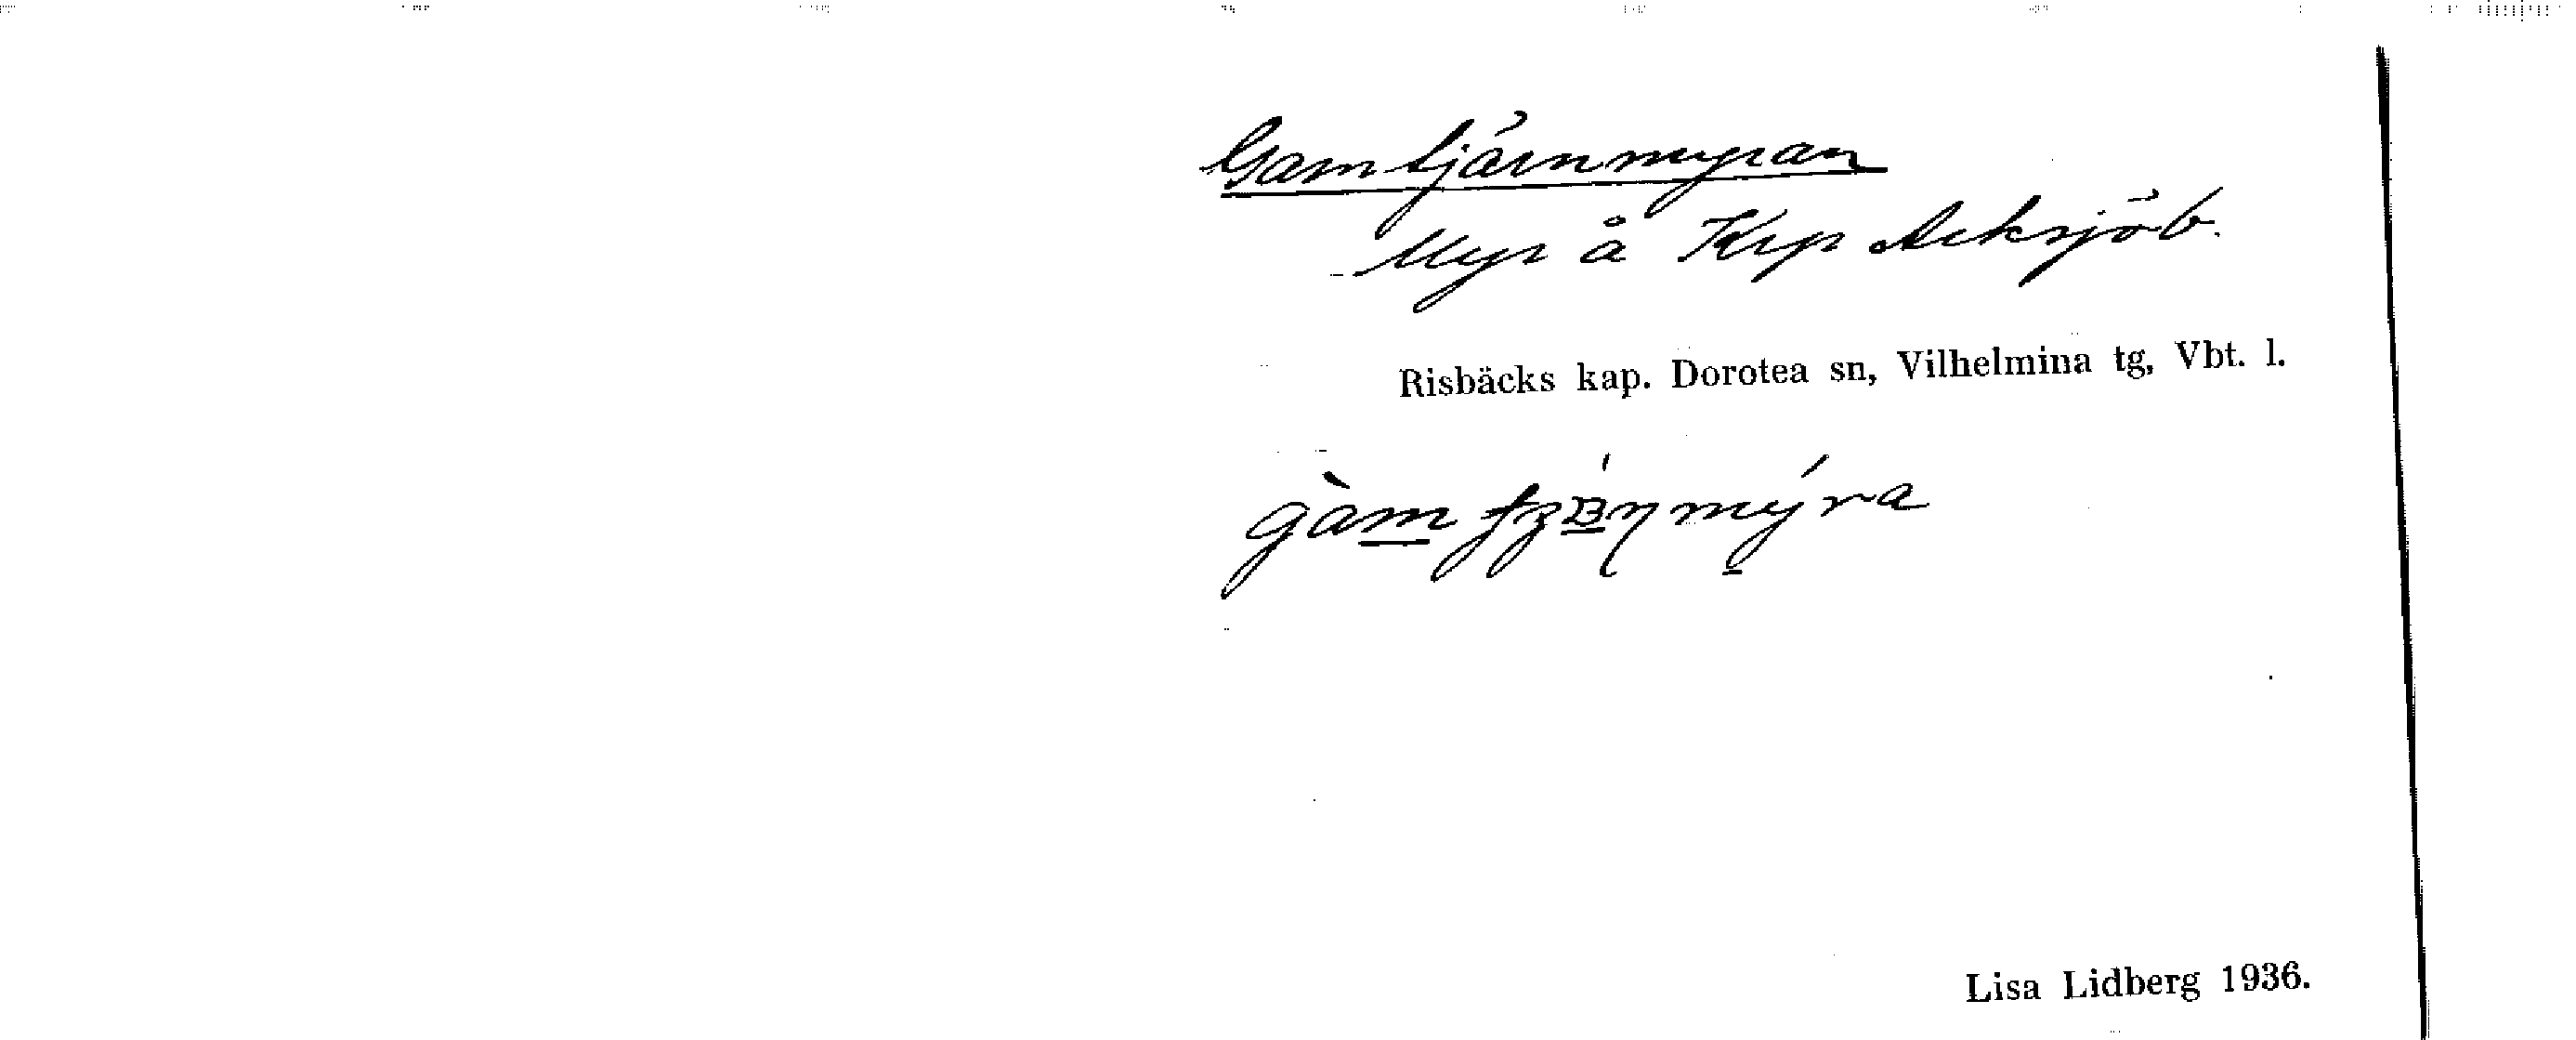 Gamtjärnmyran
Myr å Krp Arksjöb.
Risbäcks kap. Dorotea sn, Vilhelmina tg, Vbt. l.
Lisa Lidberg 1936.